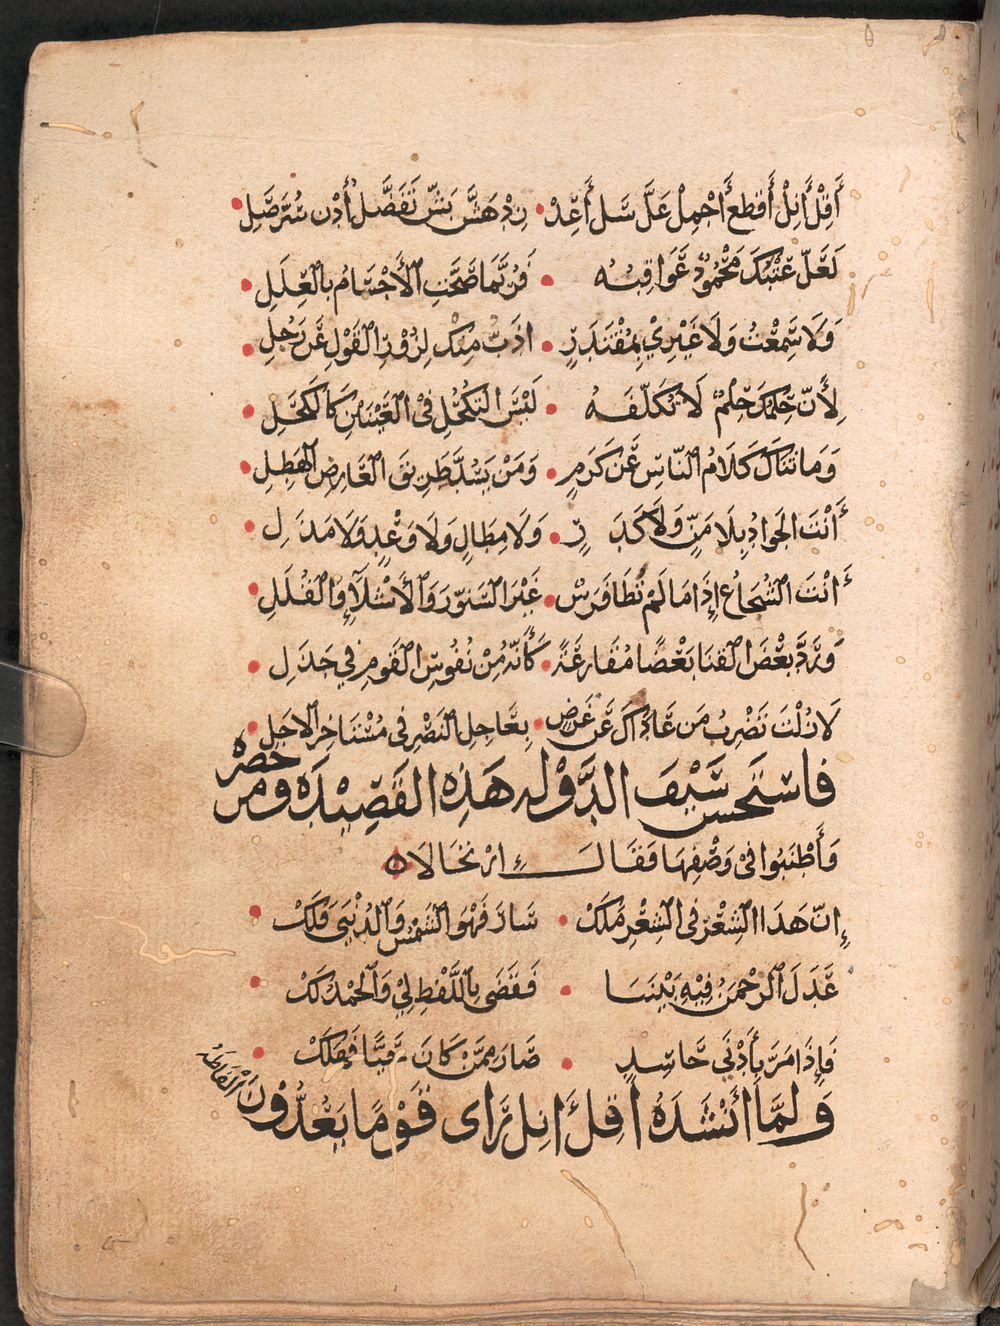 أَقِلْ أَنِلْ أَقْطِعْ أَحْمِلْ عَلِّ سَلِّ أَعِدْ • زِدْ هَشَّ بَشَّ تَفَضَّلْ أَدْنِ سُرَّ صِلِ •
لَعَلَّ عَتْبَكَ مَحْمُودٌ عَوَاقِبُهُ • فَرُبَّمَا صَحَّتِ الْأَجْسَامُ بِالْعِلَلِ •
وَلَا سَمِعْتُ وَلَا غَيْرِيْ بِمُقْتَدِرٍ • اذَبَّ مِنْكَ لِزُوْرِ الْقَوْلِ عَنْ رَجُلِ •
لِأَنَّ حِلْمَكَ حِلْمٌ لَا تَكَلَّفُهُ • لَيْسَ التَكَحُّلُ فِى الْعَيْنَيْنِ كَالْكَحَلِ •
وَمَا ثَنَاكَ كَلَامُ النَّاسِ عَنْ كَرَمٍ • وَمَنْ يَسُدُّ طَرِيقَ الْعَارِضِ الْهَطِلِ •
أَنْتَ الْجَوَادُ بِلَا مَنٍّ وَلَا كَدَرٍ • وَلَا مِطَالٍ وَلَا وَعْدٍ وَلَا مَذَلِ •
أَنْتَ الشُّجَاعُ إِذَا مَا لَمْ تَطَا فَرَسٌ • غَيْرَ السَّنَوَّرِ وَالْأَشْلَآءِ وَالْقُلَلِ •
وَرَدَّ بَعْضُ الْقَنَا بَعْضًا مُقَارَعَةً • كَأَنَّهُ مِنْ نُفُوسِ الْقَوْمِ فِي جَدَلِ •
لَا زِلْتَ تَضْرِبُ مَن عَادَاكَ عَن عَرَضٍ • بِعَاجِلِ النَصْرِ فِى مُسْتَاخِرِ الْاجَلِ •
فاستَحسن سَيْفُ الدَّوْلَه هَذِهِ الْقَصِيْدَهَ ومن حضره
وَأَطْنَبُوا فِى وَصْفِهَا فَقَالَ ارْتِجَالًا ه
إِنَّ هَذَا الشِّعْرَ فِى الشِّعْرِ مَلَكْ • سَارَ فَهْوَ الشَّمْسُ وَالدُّنْيَى فَلَكْ •
عَدَلَ الرَّحْمَنُ فِيْهِ بَيْنَنَا • فَقَضَى بِاللَّفْظِ لِيْ وَالْحَمْدِ لَكْ •
فَإِذَا مَرَّ بِأُذْنَي حَاسِدٍ • صَارَ مِمَّنْ كَانَ حَيًّا فَهَلَكْ •
وَلمَّا أَنْشَدَهُ اقِلْ أَنِلْ رَاى قَوْمًا يَعُدُّوْنَ الْفَاظَهُ